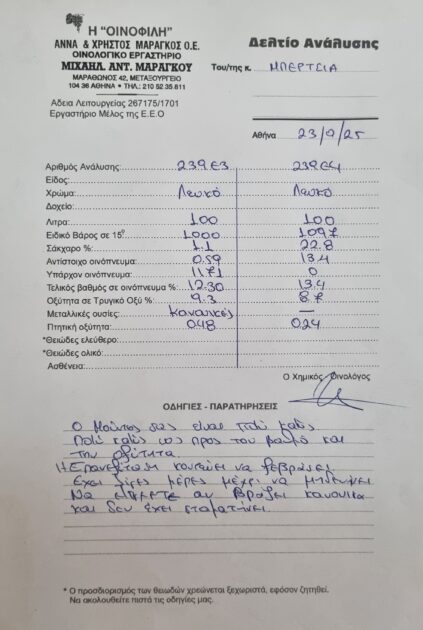 Η "ΟΙΝΟΦΙΛΗ"
ΑΝΝΑ & ΧΡΗΣΤΟΣ ΜΑΡΑΓΚΟΣ Ο.Ε.
ΟΙΝΟΛΟΓΙΚΟ ΕΡΓΑΣΤΗΡΙΟ
ΜΙΧΑΗΛ. ΑΝΤ. ΜΑΡΑΓΚΟΥ
ΜΑΡΑΘΩΝΟΣ 42, ΜΕΤΑΞΟΥΡΓΕΙΟ
104 36 ΑΘΗΝΑ • ΤΗΛ.: 210 52.35.811
Αδεια Λειτουργείας 267175/1701
Εργαστήριο Μέλος της Ε.Ε.Ο
Δελτίο Ανάλυσης
Του/της κ. ΜΠΕΡΤΣΙΑ
Αθήνα 23/9/25
Αριθμός Ανάλυσης: 239Ε3 239Ε4
Είδος:
Χρώμα: Λευκό Λευκό
Δοχείο:
Λιτρα: 100 100
Ειδικό Βάρος σε 15°: 1000 1097
Σάκχαρο %: 1.1 22.8
Αντίστοιχο οινόπνευμα: 0.59 13.4
Υπάρχον οινόπνευμα: 11.71 0
Τελικός βαθμός σε οινόπνευμα %: 12.30 13.4
Οξύτητα σε Τρυγικό Οξύ %: 9.3 8.7
Μεταλλικές ουσίες: κανονικές —
Πτητική οξύτητα: 0.48 0.24
*Θειώδες ελεύθερο:
*Θειώδες ολικό:
Ασθένεια:
Ο Χημικός Οινολόγος
ΟΔΗΓΙΕΣ - ΠΑΡΑΤΗΡΗΣΕΙΣ
Ο Μούστος σας είναι πολύ καλός
Πολύ καλός ως προς τον βαθμό και
την οξύτητα.
κοντεύει να ξεβράσει
Εχει λίγες μέρες μέχρι να
Να αν βράζει κανονικά
και δεν έχει σταματήσει.
* Ο προσδιορισμός των θειωδών χρεώνεται ξεχωριστά, εφόσον ζητηθεί.
Να ακολουθείτε πιστά τις οδηγίες μας.